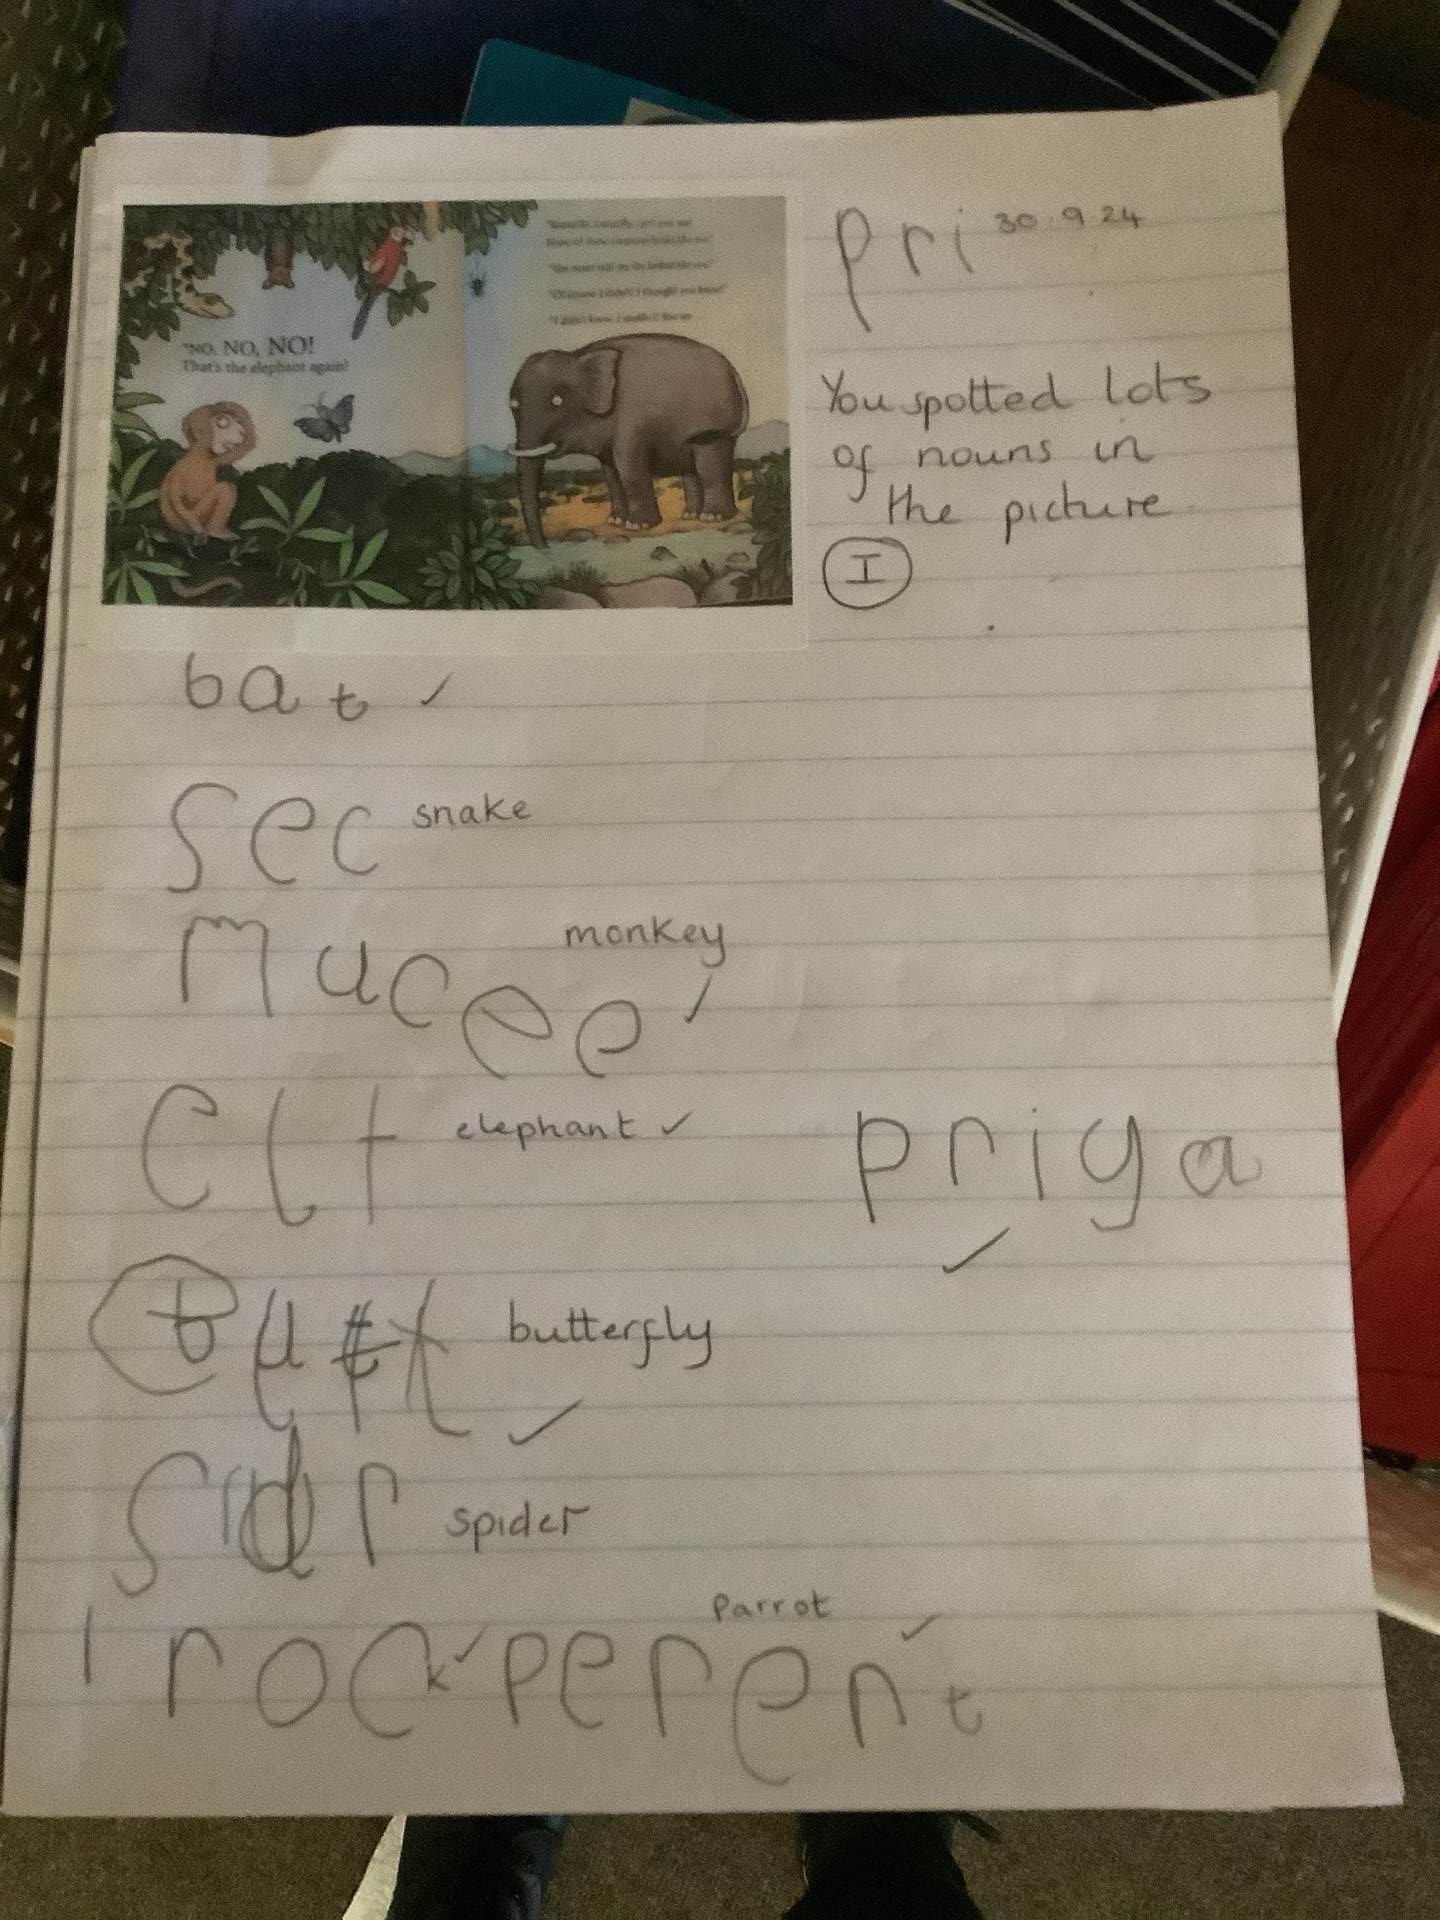 "NO, NO, NO!
That's the elephant again!
pri 30.9.24
You spotted lots
of nouns in
the picture.
I
bat ✓
sec snake
mucee monkey ✓
elt elephant ✓
priya ✓
butterfly ✓
sidr spider
rock ✓ perent parrot ✓